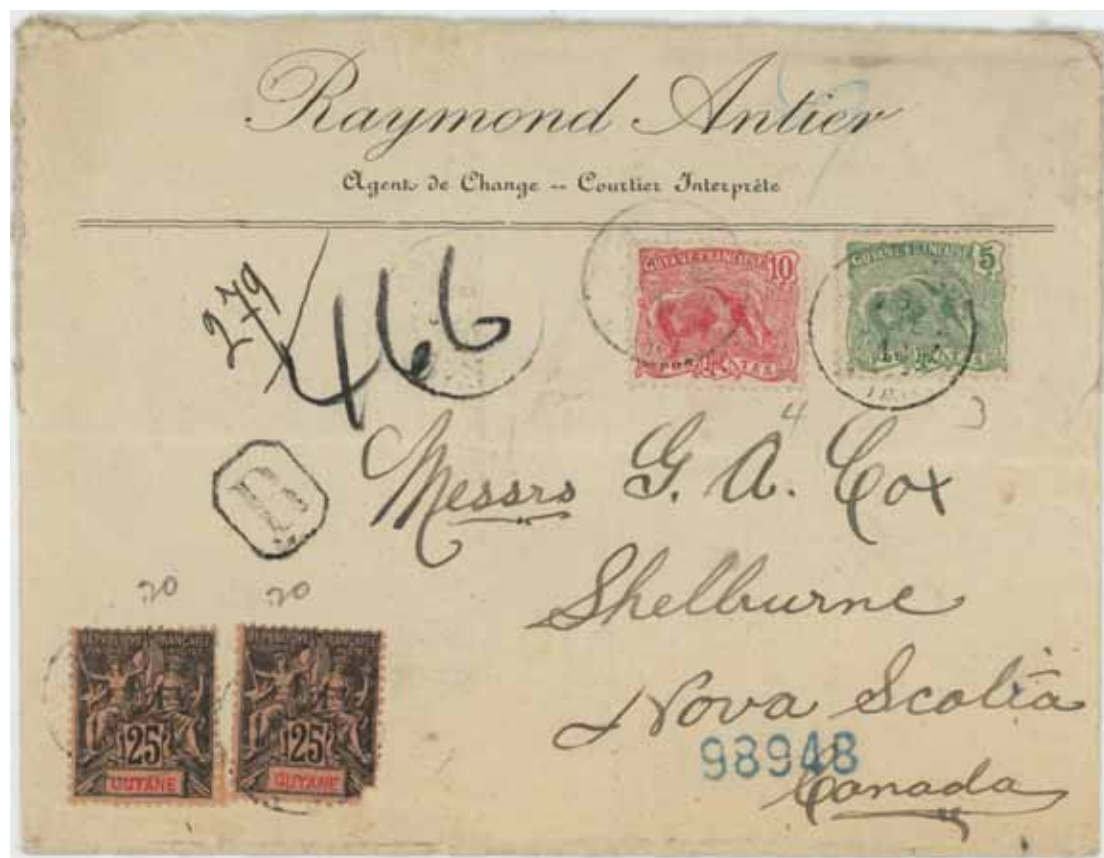 Raymond Antier
Agent de Change -- Courtier Interprète
279
466
GUYANE FRANÇAISE 10
POSTES
GUYANE FRANÇAISE 5
POSTES
4
3
R
Messrs G. A. Cox
Shelburne
Nova Scotia
98948
Canada
20
20
RÉPUBLIQUE FRANÇAISE
25
GUYANE
RÉPUBLIQUE FRANÇAISE
25
GUYANE